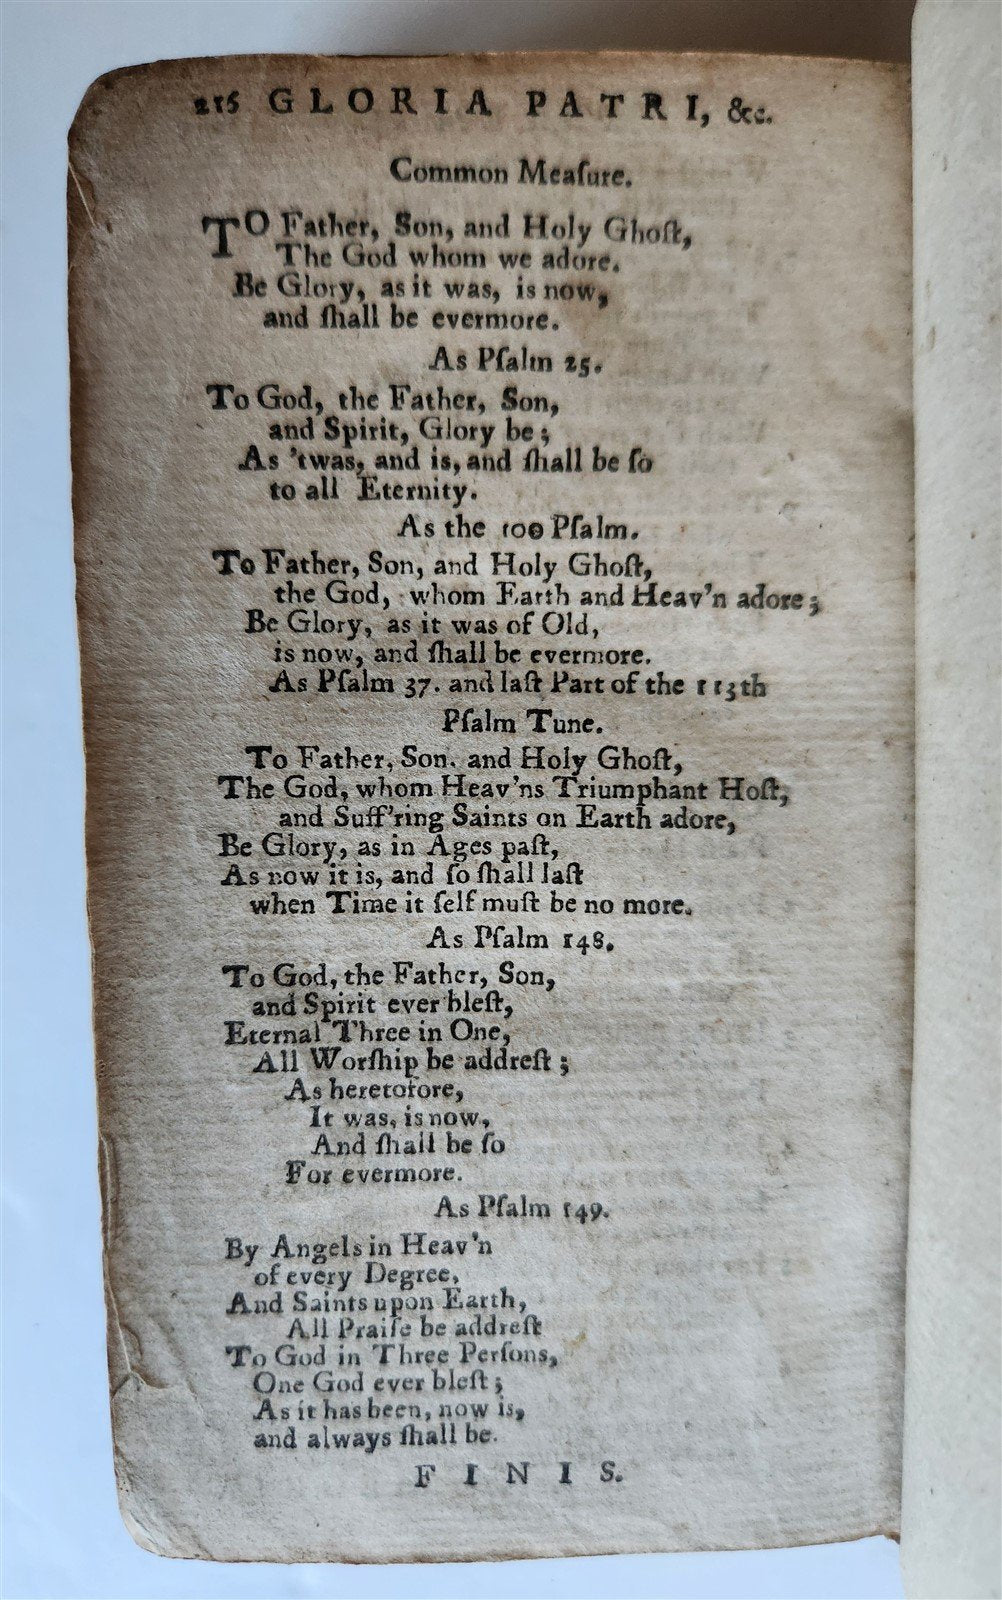 216 GLORIA PATRI, &c.
Common Meaſure.
TO Father, Son, and Holy Ghoſt,
The God whom we adore.
Be Glory, as it was, is now,
and ſhall be evermore.
As Pſalm 25.
To God, the Father, Son,
and Spirit, Glory be;
As 'twas, and is, and ſhall be ſo
to all Eternity.
As the 100 Pſalm.
To Father, Son, and Holy Ghoſt,
the God, whom Earth and Heav'n adore;
Be Glory, as it was of Old,
is now, and ſhall be evermore.
As Pſalm 37. and laſt Part of the 113th
Pſalm Tune.
To Father, Son. and Holy Ghoſt,
The God, whom Heav'ns Triumphant Hoſt,
and Suff'ring Saints on Earth adore,
Be Glory, as in Ages paſt,
As now it is, and ſo ſhall laſt
when Time it ſelf muſt be no more.
As Pſalm 148.
To God, the Father, Son,
and Spirit ever bleſt,
Eternal Three in One,
All Worſhip be addreſt;
As heretofore,
It was, is now,
And ſhall be ſo
For evermore.
As Pſalm 149.
By Angels in Heav'n
of every Degree,
And Saints upon Earth,
All Praiſe be addreſt
To God in Three Perſons,
One God ever bleſt;
As it has been, now is,
and always ſhall be.
FINIS.